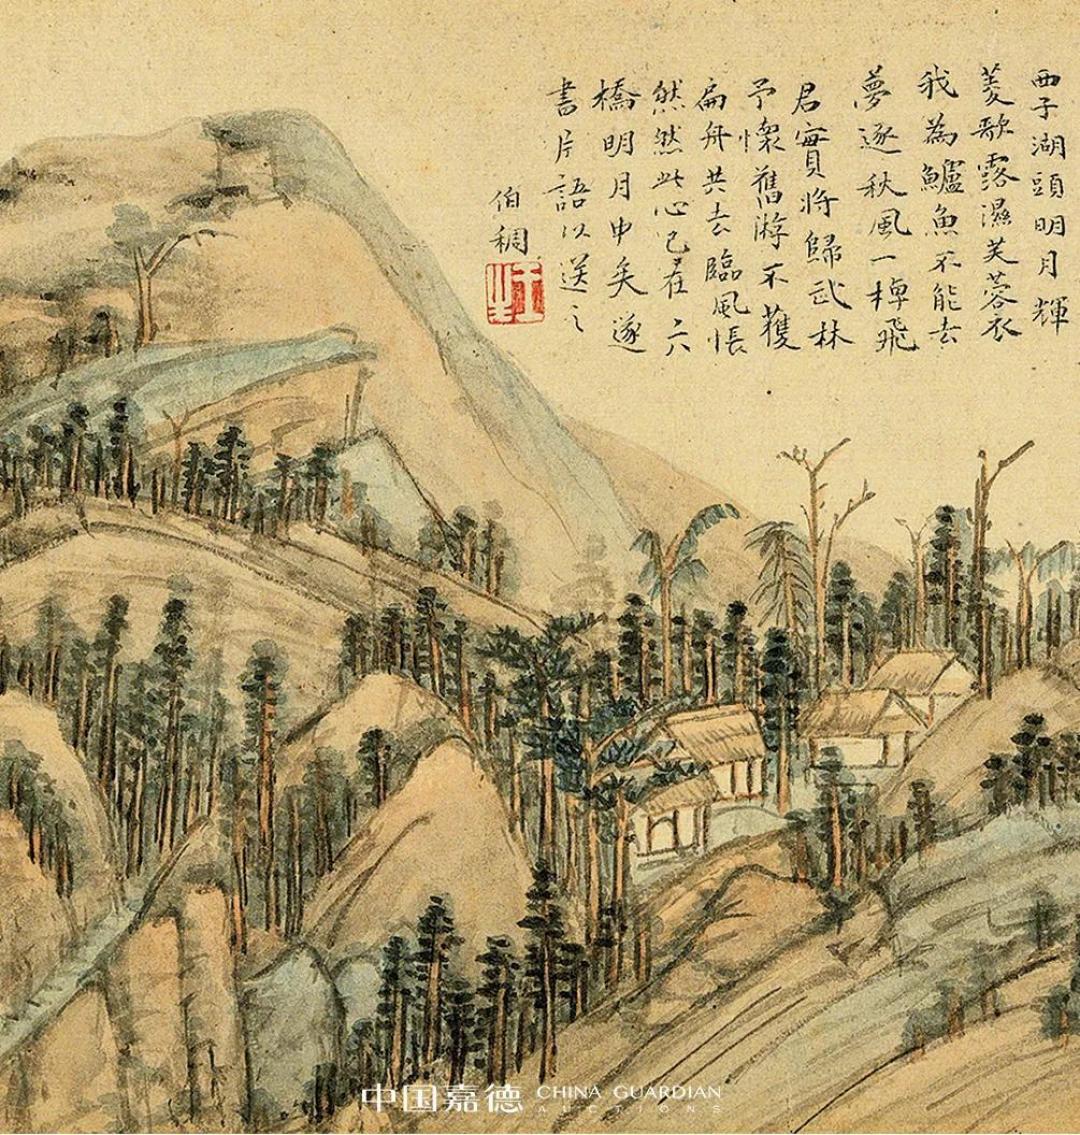 西子湖頭明月輝
菱歌露濕芙蓉衣
我為鱸魚不能去
夢逐秋風一棹飛
君實將歸武林
予懷舊游不獲
扁舟共去臨風悵
然然此心已在六
橋明月中矣遂
書片語以送之
伯稠
中国嘉德 CHINA GUARDIAN
AUCTIONS